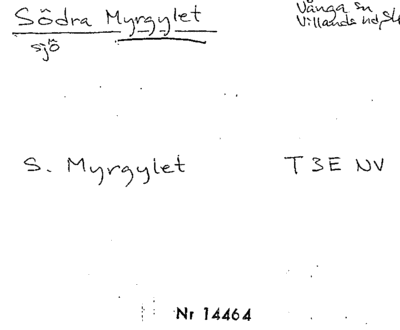 Södra Myrgylet
sjö
Vånga sn
Villands hd, Sk
S. Myrgylet
T 3E NV
Nr 14464